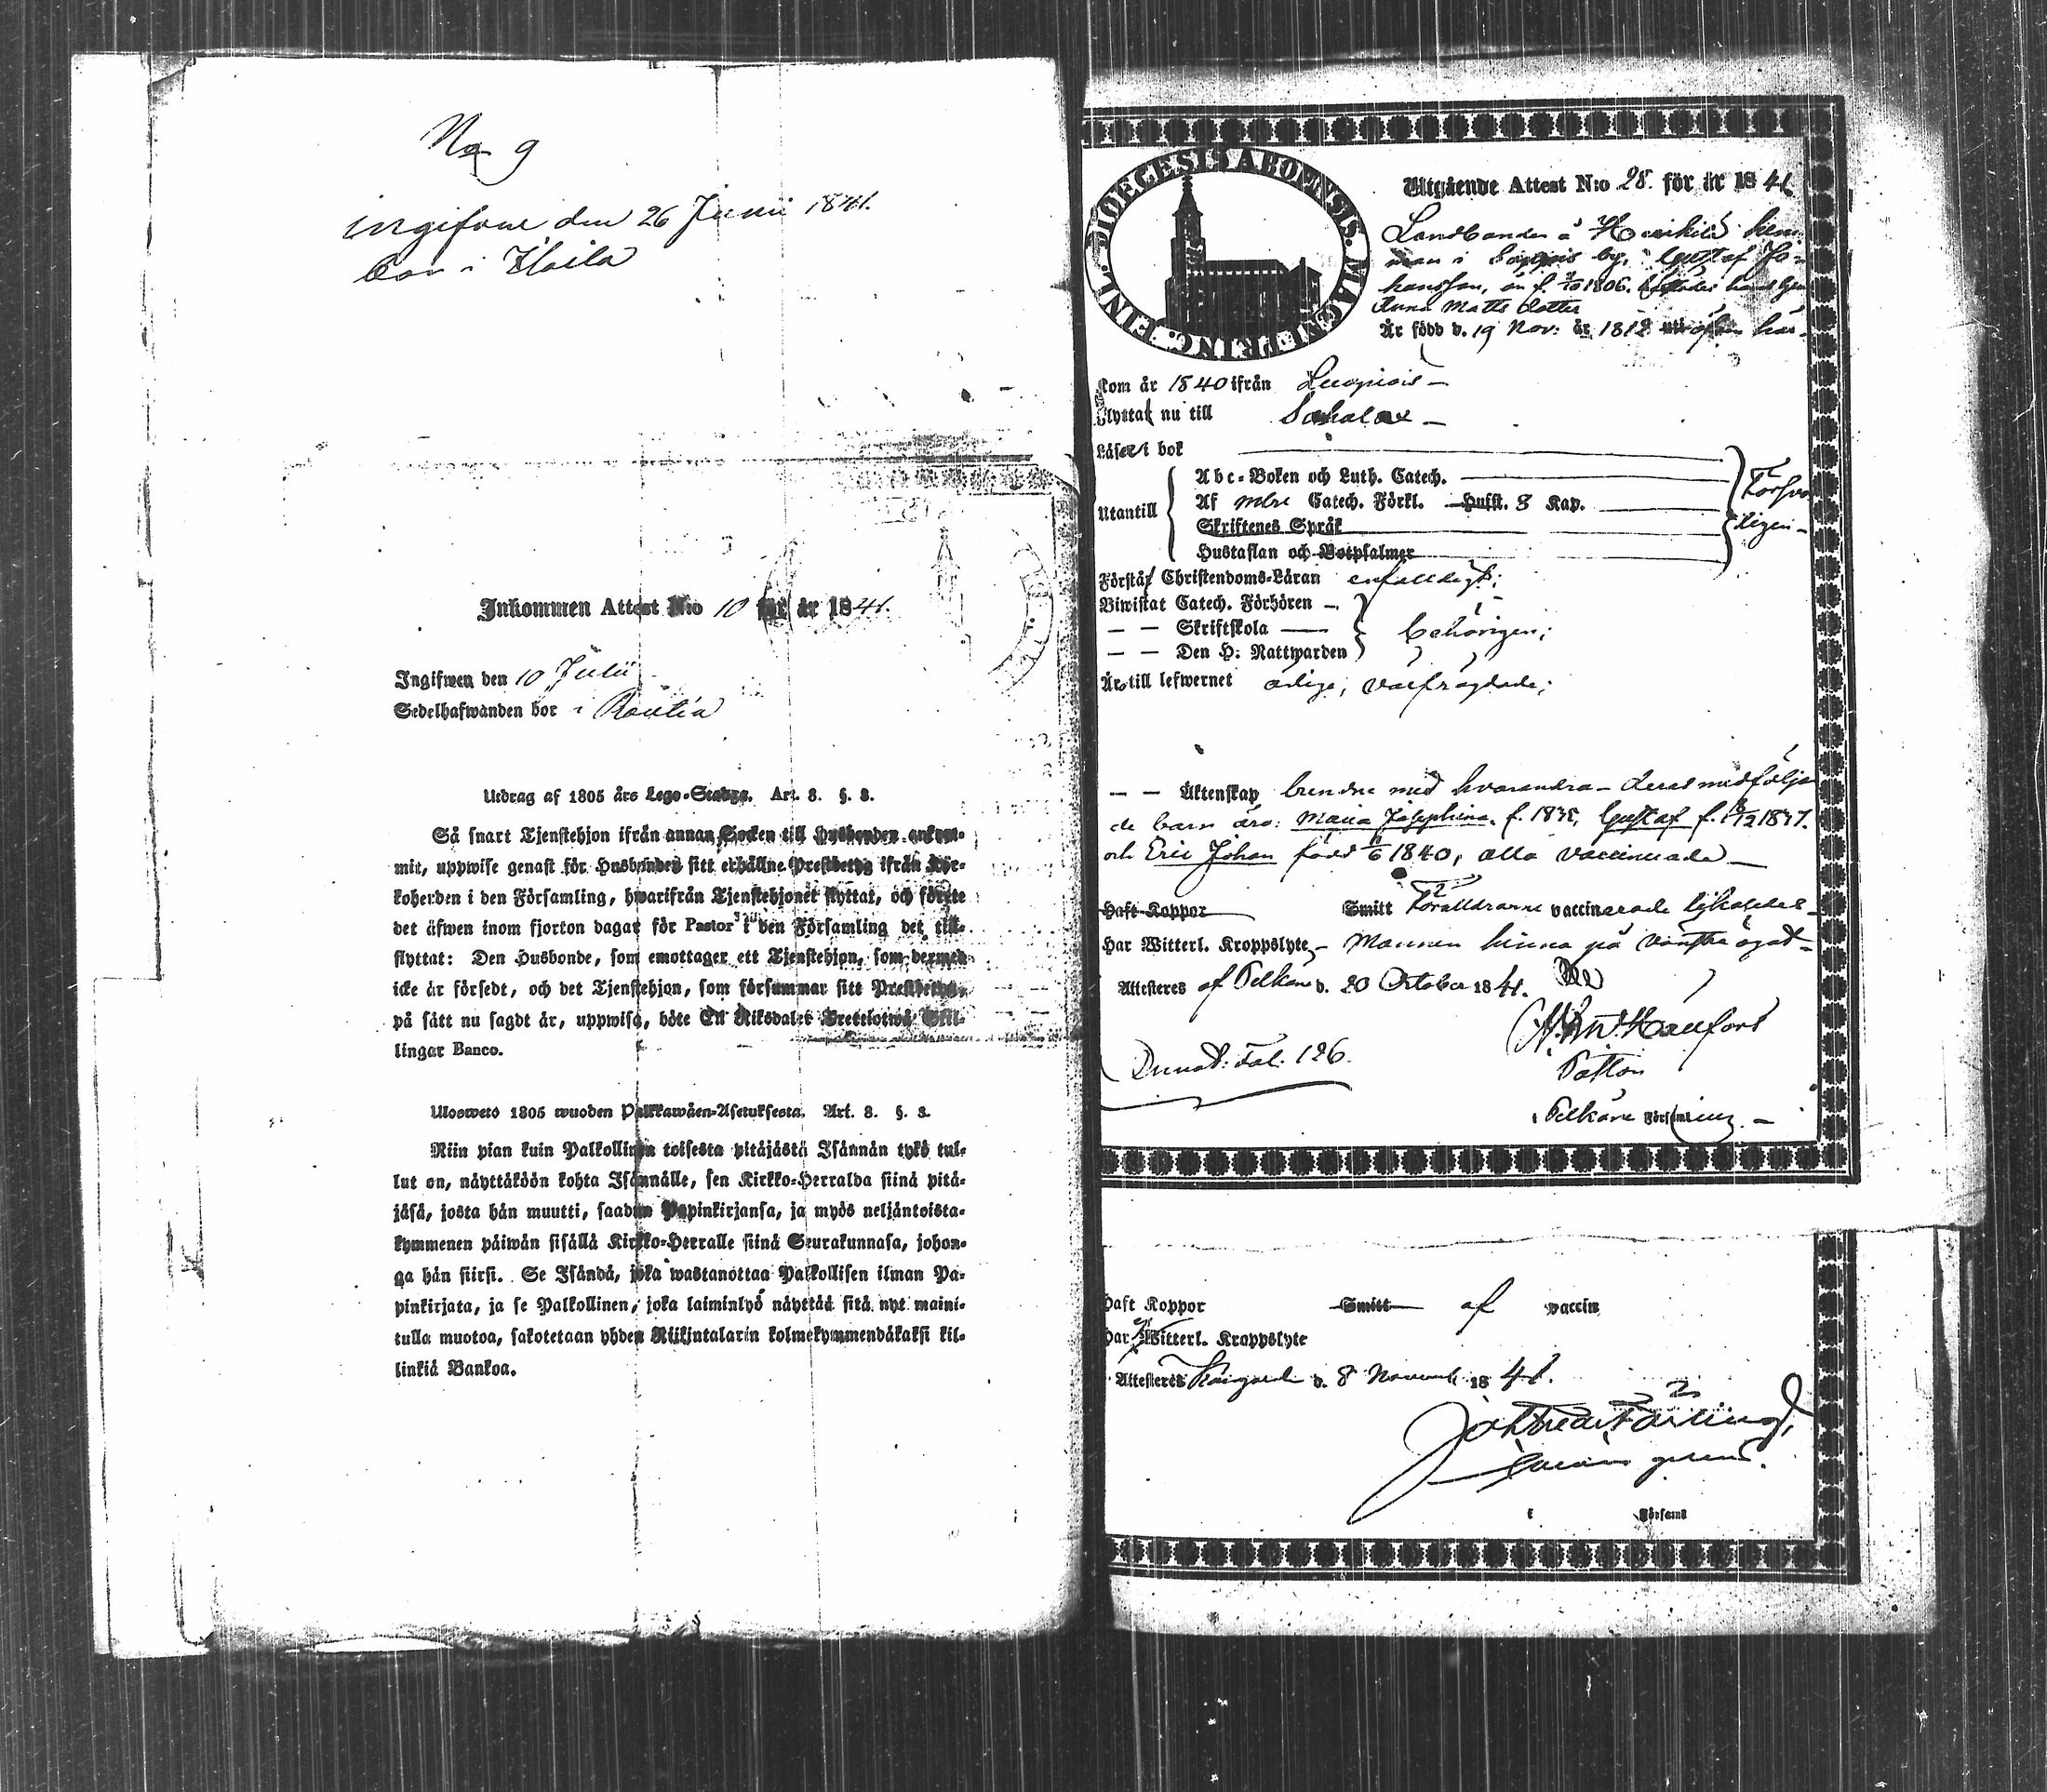 No 9
ingifven den 26 Junii 1841.
bor i Haila
Inkommen Attest N:o 10 för år 1841.
Ingifwen den 10 Julii
Sedelhafwanden bor i Rautia
Utdrag af 1805 års Lego-Stadga. Art. 8. §. 3.
Så snart Tjenstehjon ifrån annan Socken till Husbonden ankom-
mit, uppwise genast för Husbonden sitt erhållne Prestbetyg ifrån Kyr-
koherden i den Församling, hwarifrån Tjenstehjonet flyttat, och förete
det äfwen inom fjorton dagar för Pastor i den Församling det till-
flyttat: Den Husbonde, som emottager ett Tjenstehjon, som dermed
icke är försedt, och det Tjenstehjon, som försummar sitt Prestbetyg,
på sätt nu sagdt är, uppwisa, böte En Riksdaler Trettiotwå Skil-
lingar Banco.
Ulosweto 1805 wuoden Palkkawäen-Asetuksesta. Art. 8. §. 3.
Niin pian kuin Palkollinen toisesta pitäjästä Isännän tykö tul-
lut on, näyttäköön kohta Isännälle, sen Kirkko-Herralda siinä pitä-
jäsä, josta hän muutti, saadun Papinkirjansa, ja myös neljäntoista-
kymmenen päiwän sisällä Kirkko-Herralle siinä Seurakunnasa, johon-
ga hän siirsi. Se Isändä, joka wastanottaa Palkollisen ilman Pa-
pinkirjata, ja se Palkollinen, joka laiminlyö näyttää sitä nyt maini-
tulla muotoa, sakotetaan yhden Riikintalarin kolmekymmendäkaksi kil-
linkiä Bankoa.
DIOECESIS ABOENSIS. MAGN. PRINC. FINL.
Utgående Attest N:o 28. för år 1841
Landbonden å Heikkilä hem
man i by, Gustaf Jo-
hansson, än f. 1806. hans
Anna Matts dotter
Är född d. 19 Nov: år 1812 här-
Kom år 1840 ifrån Luopiois -
Flyttat nu till Sahalax -
Läser i bok
Utantill
Abc-Boken och Luth. Catech.
Af mlre Catech. Förkl. Hufst. 8 Kap.
Skriftenes Språk
Hustaflan och Botpsalmer
Försva
ligen -
Förstår Christendoms-Läran enfaldigt;
Biwistat Catech. Förhören -
— — Skriftskola — behörigen;
— — Den H: Nattwarden
Äro till lefwernet ärlige, välfrägdade;
— — Äktenskap bundne med hvarandra - deras medföljan
de barn äro: Maria Josephina, f. 1835, Gustaf f. 1837.
och Eric Johan född 1840, alla vaccinerade -
Haft Koppor Smitt Föräldrarne vaccinerade likaledes -
Har Witterl. Kroppslyte - Mannen hinna på vänstra ögat -
Attesteres af Pelkäne d. 20 October 1841.
Pastor
i Pelkäne Församling -
Fol: 126.
Haft Koppor Smitt af vaccin
Har Witterl. Kroppslyte
Attesteres Kangasala d. 8 Novemb 1841.
i Församl